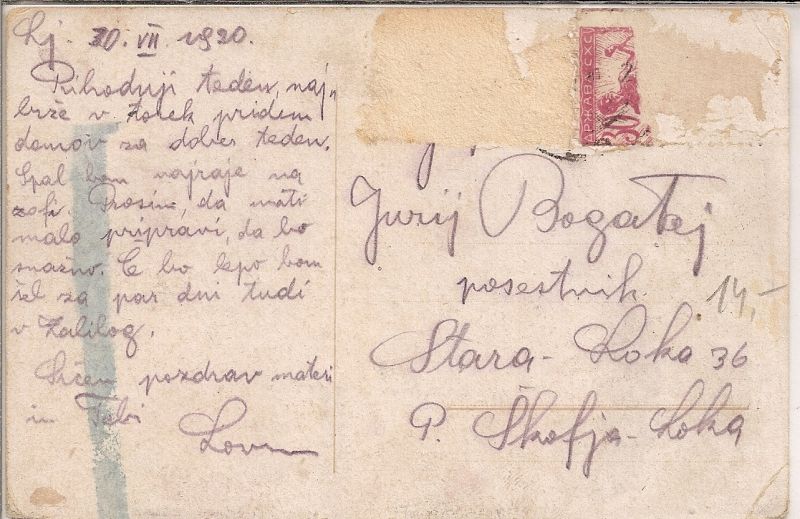 Lj. 20. VII 1920.
Prihodnji teden, naj-
brže v torek pridem
domov za dober teden.
Spal bom najraje na
zofi. Prosim, da mati
malo pripravi, da bo
snažno. Če bo lepo bom
šel za par dni tudi
v Zalilog.
Srčen pozdrav materi
in Tebi
ДРЖАВА СХС
30
Jurij Bogataj
posestnik
14,-
Stara-Loka 36
P. Škofja-Loka